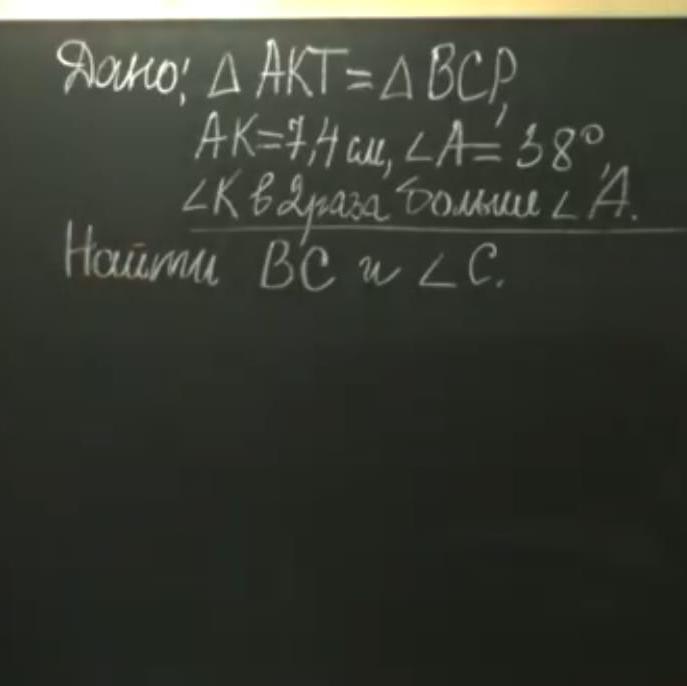 Дано: △ AKT = △ BCP,
AK=7,4 см, ∠A= 38°,
∠K в 2 раза больше ∠A.
Найти BC и ∠C.